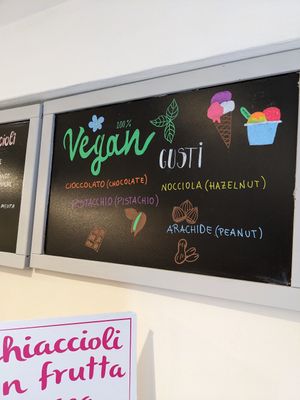 100%
Vegan
GUSTI
CIOCCOLATO (CHOCOLATE)
NOCCIOLA (HAZELNUT)
PISTACCHIO (PISTACHIO)
ARACHIDE (PEANUT)
hiaccioli
n frutta